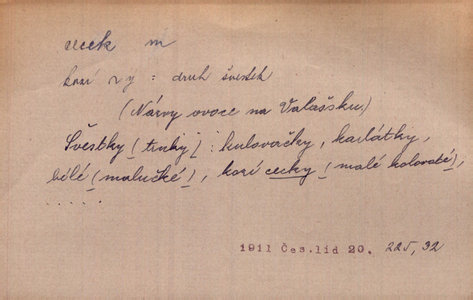 cecek m
kozí ~ý : druh švestek
(Názvy ovoce na Valašsku)
Švestky (trnky) : kulovačky, karlátky,
bělé (malučké), kozí cecky (malé kolovaté),
.....
1911 Čes.lid 20. 225, 32